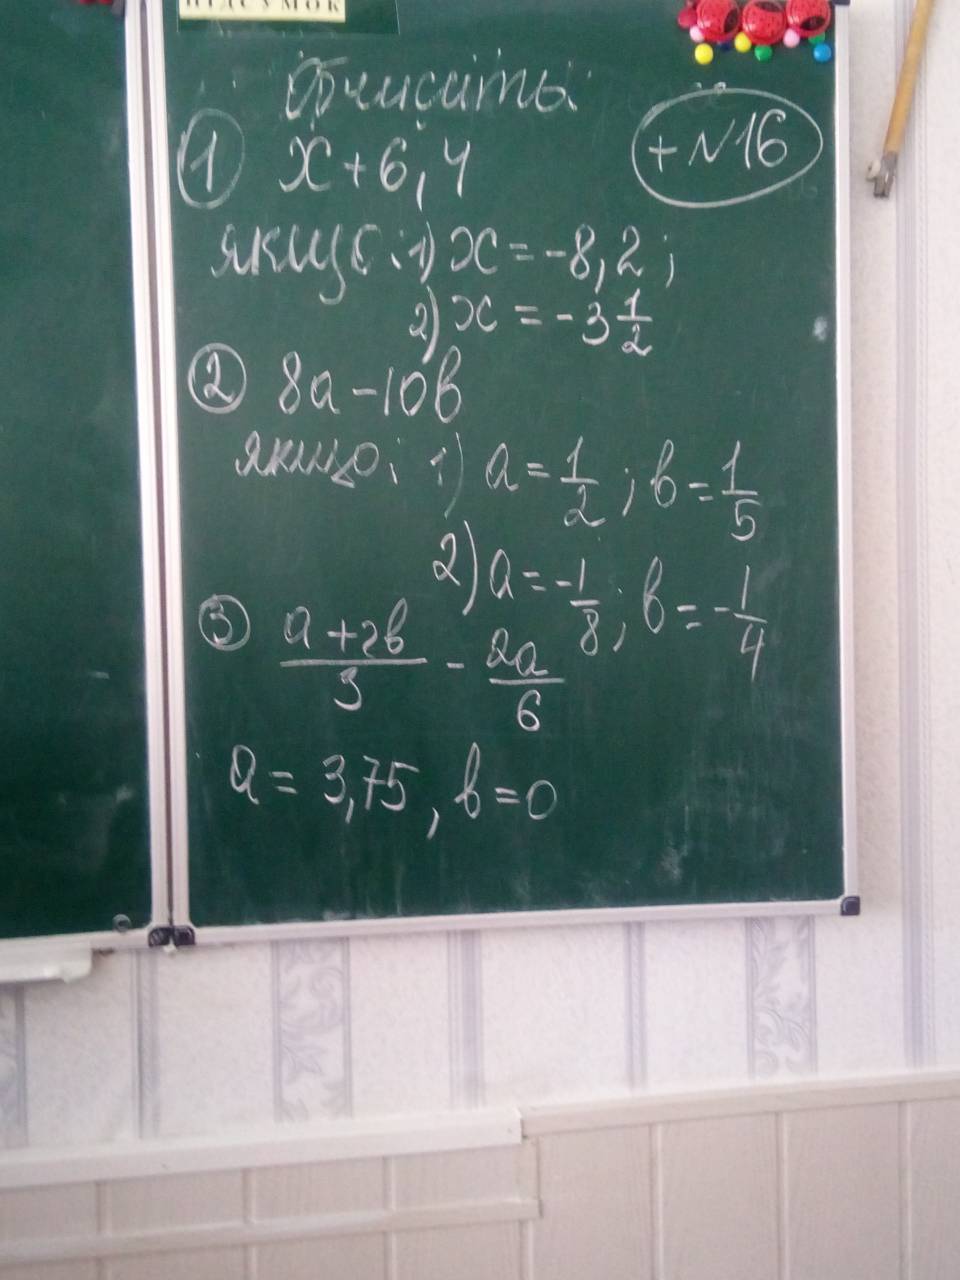 ПІДСУМОК
Обчисліть
① x + 6,4
+ №16
якщо: 1) x = -8,2;
2) x = -3 1/2
② 8a - 10b
якщо: 1) a = 1/2; b = 1/5
2) a = -1/8; b = -1/4
③ (a + 2b)/3 - 2a/6
a = 3,75, b = 0